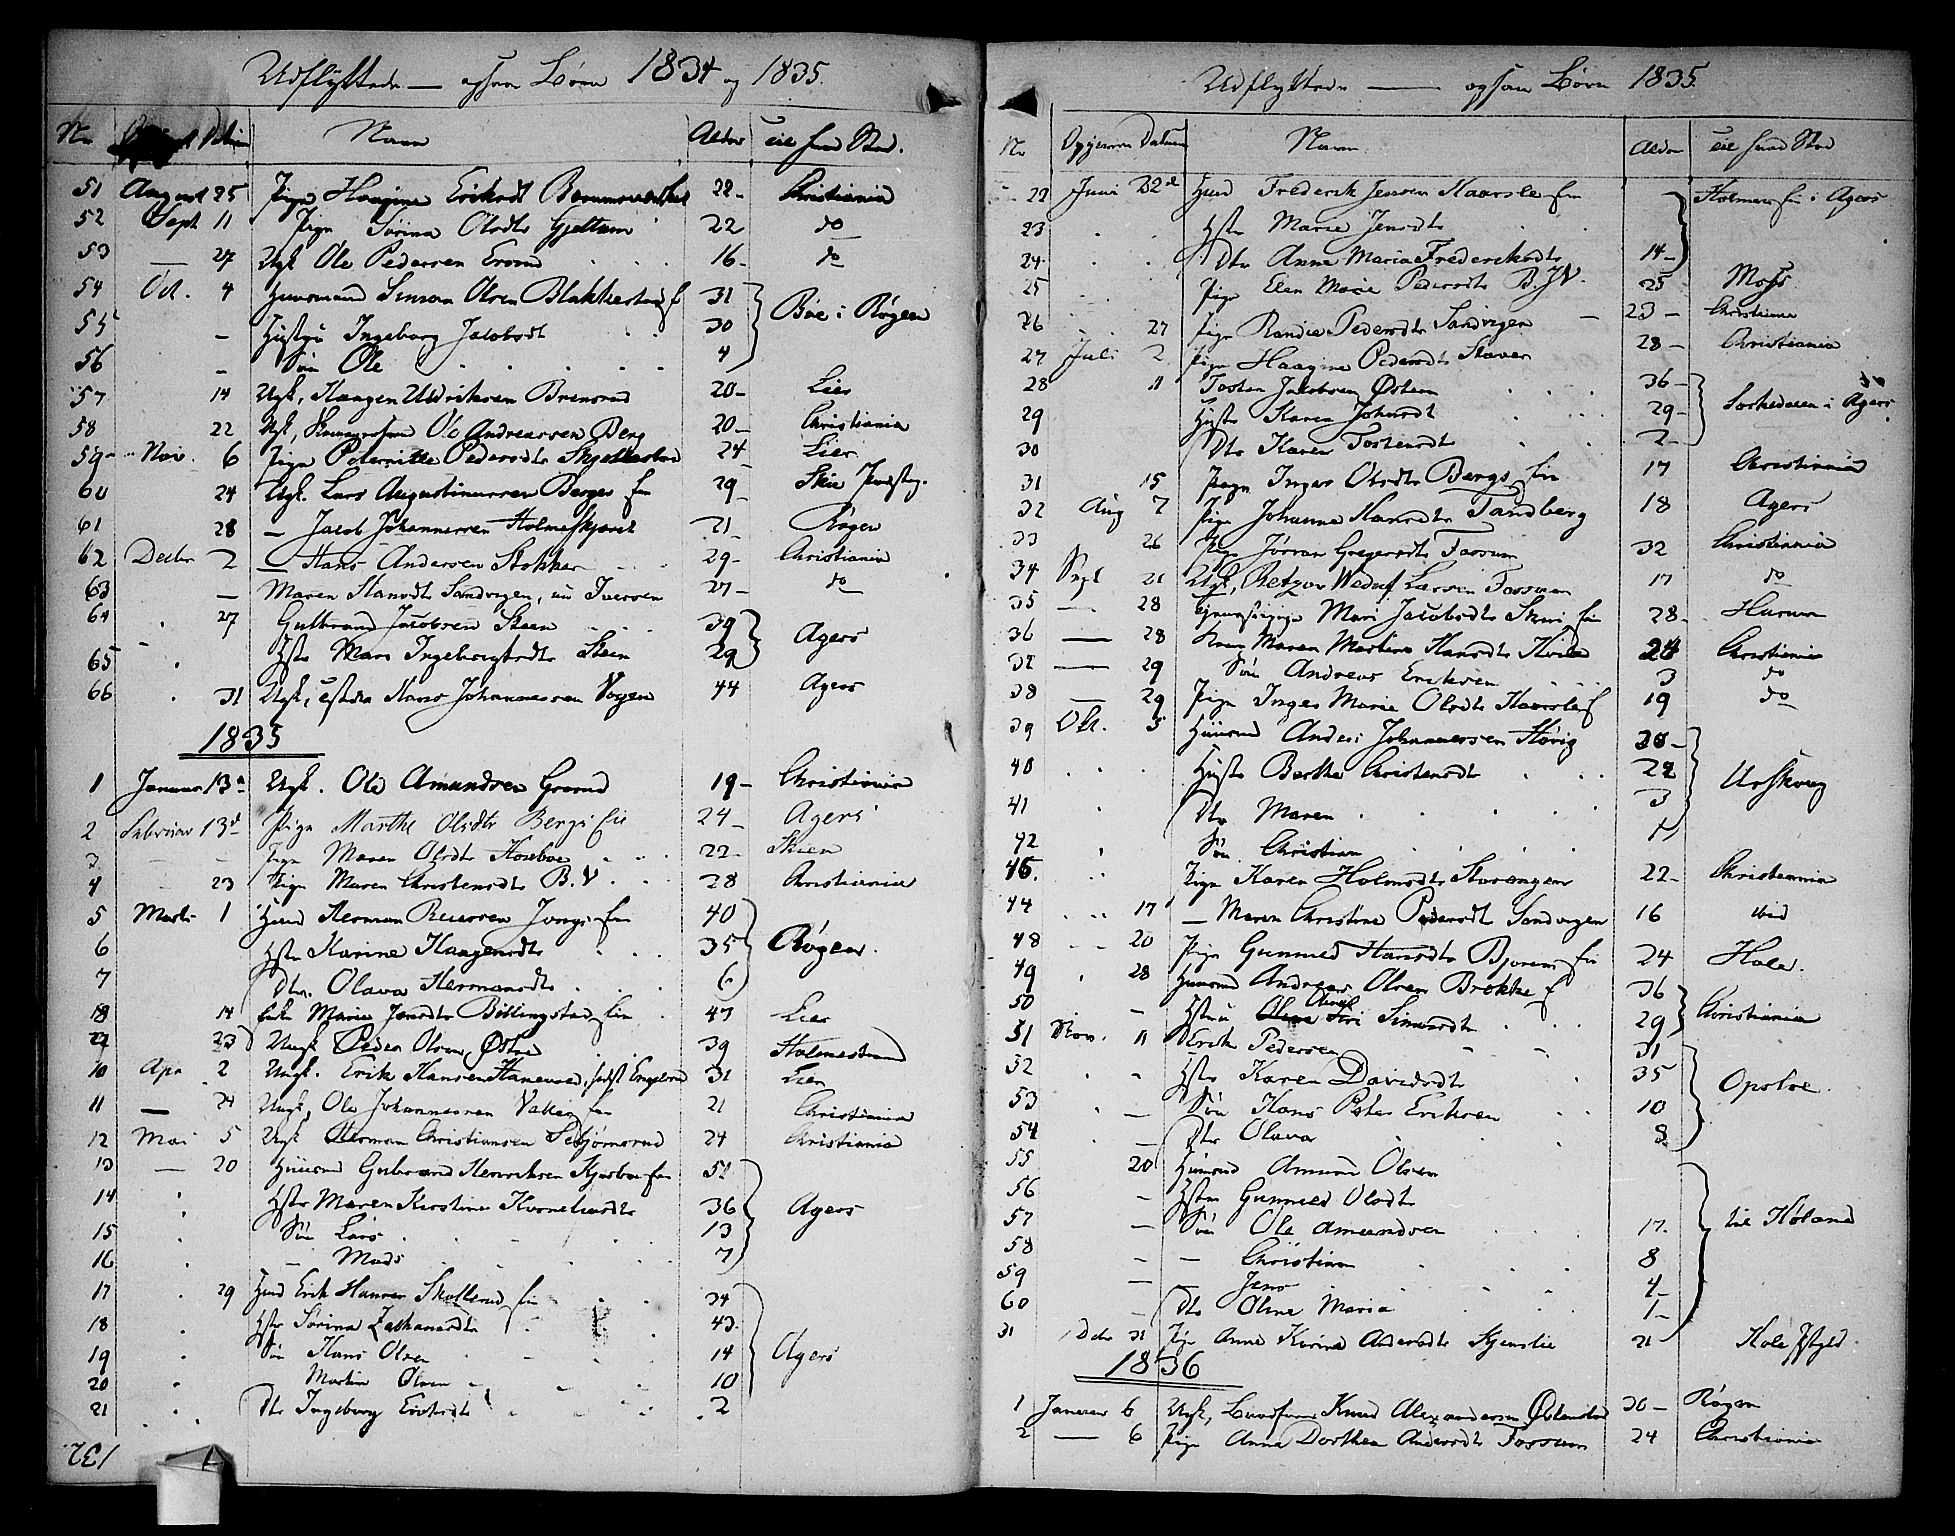 Udflyttede — ogsaa Børn 1834 og 1835.
Nr Datum Navn Alder til hvad Sted.
51 August 25 Pige Haagine Eriksdt 22 Christiania
52 Sept 11 Pige Sørine Olsdtr Gjettum 22 do
53 — 27 Ugk Ole Pedersen 16 do
54 Oct. 4 Huusmand Simon Olsen Blakkestad 31 Bøe i Røgen
55 - Hustru Ingeborg Jacobsdt 30
56 - Søn Ole 4
57 14 Ugk, Haagen Ulriksen Brensrud 20 Lier
58 22 Ugk, Ole Andreassen Berg 20 Christiania
59 Nov. 6 Pige Pedersdtr Skjellestad 24 Lier
60 24 Ugk. Lars Augustinussen Berger 29 Skie
61 28 — Jacob Johannessen Holmeskjær 21 Røgen
62 Decbr 2 — Hans Andersen Stokker 29 Christiania
63 — Maren Hansdtr Sandvigen, 27 do
64 27 Gulbrand Jacobsen Steen 39 Agers
65 Hstr Mari Ingebrigtsdtr Steen 29
66 31 Ugk, Hans Johannessen Vøyen 44 Agers
1835
1 Januar 13 Ugk. Ole Amundsen Grorud 19 Christiania
2 Februar 13 Pige Marthe Olsdtr Bergs 24 Agers
3 — — Pige Maren Olsdtr 22 Skien
4 23 Pige Maren Christensdtr B.V. 28 Christiania
5 Marts 1 Hmd Herman Jongs 40 Røgen.
6 Hstr Karine Haagensdtr 35
7 Dtr. Olava Hermansdtr 6
8 14 Enke Marie Jensdtr Billingstad 47 Lier
9 23 Ungk Peder Olsen Østre 39 Holmestrand
10 Apr 2 Ungk. Erik Hansen 31 Lier
11 — 24 Ungk, Ole Johannessen Valler 21 Christiania
12 Mai 5 Ugk Herman Christiansen 24 Christiania
13 — 20 Huusmd Gulbrand Henriksen 51 Agers
14 Hstr Maren Kirstine 36
15 Søn Lars 13
16 - Mads 7
17 29 Hmd Erik Hansen Skollerud 34 Agers
18 Hstr Sørine Zachariasdtr 43
19 Søn Hans Olsen 14
20 Martin Olsen 10
21 Dtr Ingeborg Eriksdt 2
132
Udflyttede — ogsaa Børn 1835
Nr Datum Navn Alder til hvad Sted
22 Juni 22 Hmd Frederik Jensen Haarsle Agers
23 Hstr Marie Jensdtr
24 Dtr Anne Maria Frederiksdtr 14
25 Pige Elen Marie Pedersdtr B.V. 25 Moss
26 27 Pige Randie Pedersdtr Sandvigen 23 Christiania
27 Juli 2 Pige Haagine Pedersdtr Staver 28 Christiania
28 11 Tosten Jacobsen Østern 36 Sørkedalen i Agers
29 Hstr Karen Johnsdt 29
30 Dtr Karen Tostensdt 2
31 15 Pige Inger Olsdtr Bergs 17 Christiania
32 Aug 7 Pige Johanne Hansdtr Tandberg 18 Agers
33 26 Pige Jørran Gregersdtr Fossum 32 Christiania
34 Sept 21 Ugk, Larsen Fossum 17 do
35 — 28 Mari Jacobsdt Skui 28 Hurum
36 — 28 Maren Martine Hansdtr 24 Christiania
37 — 29 Søn Andreas Eriksen 3 do
38 — 29 Pige Inger Marie Olsdtr Haarsle 19 do
39 Oct. 5 Huusmd Anders Johannessen Høvig 30 Urskoug
40 Hstr Berthe Christensdtr 22
41 Dtr Maren 3
42 Søn Christian 1
45 Pige Karen Holmsdtr Stovengen 22 Christiania
44 17 — Maren Christine Pedersdt Sandvigen 16 ibid
48 20 Pige Gunnild Hansdtr Bjorum 24 Hole.
49 28 Huusmd Andreas Olsen Brekke 36 Christiania
50 - Hstru Simensdtr 29
51 Nov. 11 Erik Pedersen 31 Opsloe.
52 Hstr Karen Davidsdtr 35
53 — Søn Hans Peter Eriksen 10
54 — Dtr Olava 8
55 20 Huusmd Amund Olsen til Høland
56 - Hstr Gunnild Olsdtr
57 — Søn Ole Amundsen 17
58 — — Christian 8
59 — — Jens 4
60 — Dtr Oline Maria 1
31 Dcbr 31 Pige Anne Kirine Andersdtr 21 Hole
1836
1 Januar 6 Ugk, Knud Alexandersen Østenstad 30 Røgen
2 — 6 Pige Anna Dorthea Andersdtr Fossum 24 Christiania